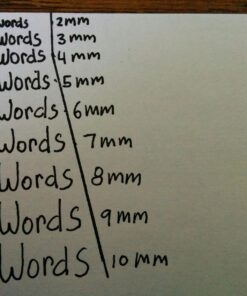 words 2mm
Words 3mm
Words 4mm
Words 5mm
Words 6mm
Words 7mm
Words 8mm
Words 9mm
Words 10mm